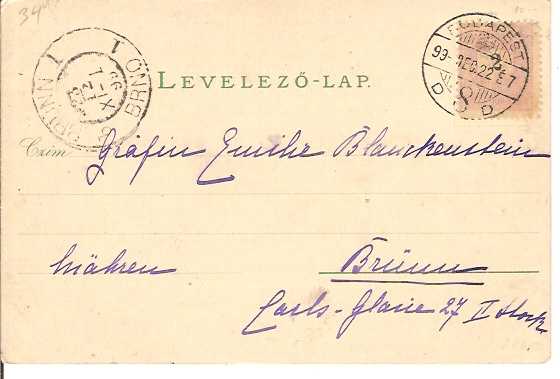 344
BUDAPEST
99 DEC. 22 E 7
D 8 D
BRÜNN 1
BRNO 1
99
LEVELEZŐ-LAP.
Czim Gräfin Emilie Blanckenstein
Mähren Brünn
Carls-Glacie 27 II Stock